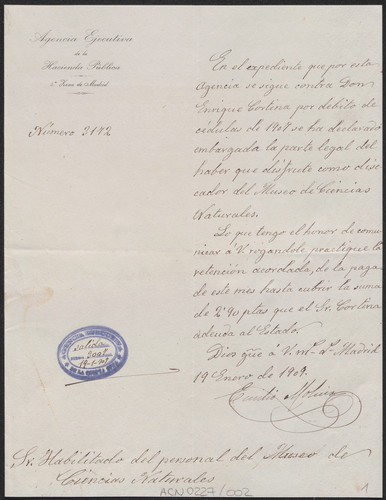 Agencia Ejecutiva
de la
Hacienda Pública
Zona de Madrid
Número 3172
En el expediente que por esta
Agencia se sigue contra Don
Enrique Cortina por débito de
cédulas de 1907 se ha declarado
embargada la parte legal del
haber que disfruta como dise-
cador del Museo de Ciencias
Naturales.
Lo que tengo el honor de comu-
nicar á V. rogandole practique la
retención acordada, de la paga
de este mes hasta cubrir la suma
de 2'90 ptas que el Sr. Cortina
adeuda al Estado.
Dios gue á V. ms. as. Madrid
19 Enero de 1909.
Emilio
AGENCIA
Salida
19-1-909
Sr. Habilitado del personal del Museo de
Ciencias Naturales
ACN0227/002
1